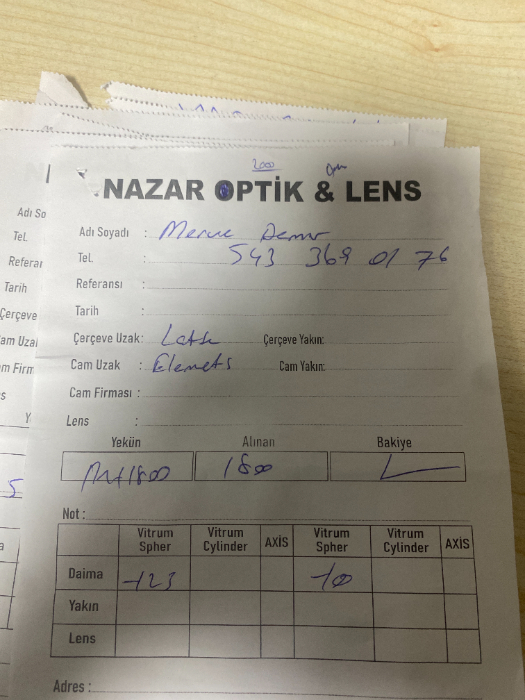 2000
NAZAR OPTİK & LENS
Adı Soyadı : Merve Demir
Tel. : 543 369 01 76
Referansı :
Tarih :
Çerçeve Uzak: Çerçeve Yakın:
Cam Uzak : Elemets Cam Yakın:
Cam Firması :
Lens :
Yekün Alınan Bakiye
1800 1800
Not :
Vitrum Spher Vitrum Cylinder AXİS Vitrum Spher Vitrum Cylinder AXİS
Daima
Yakın
Lens
Adres :
Adı So
Tel.
Referan
Tarih
Çerçeve
am Uzal
m Firm
s
Y
5
a